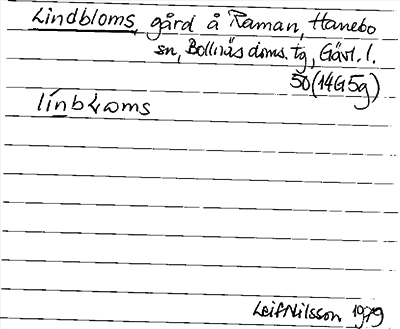 Lindbloms, gård å Raman, Hanebo
sn, Bollnäs doms. tg, Gävl. l.
50 (14G5g)
línbɫωms
Leif Nilsson 1979